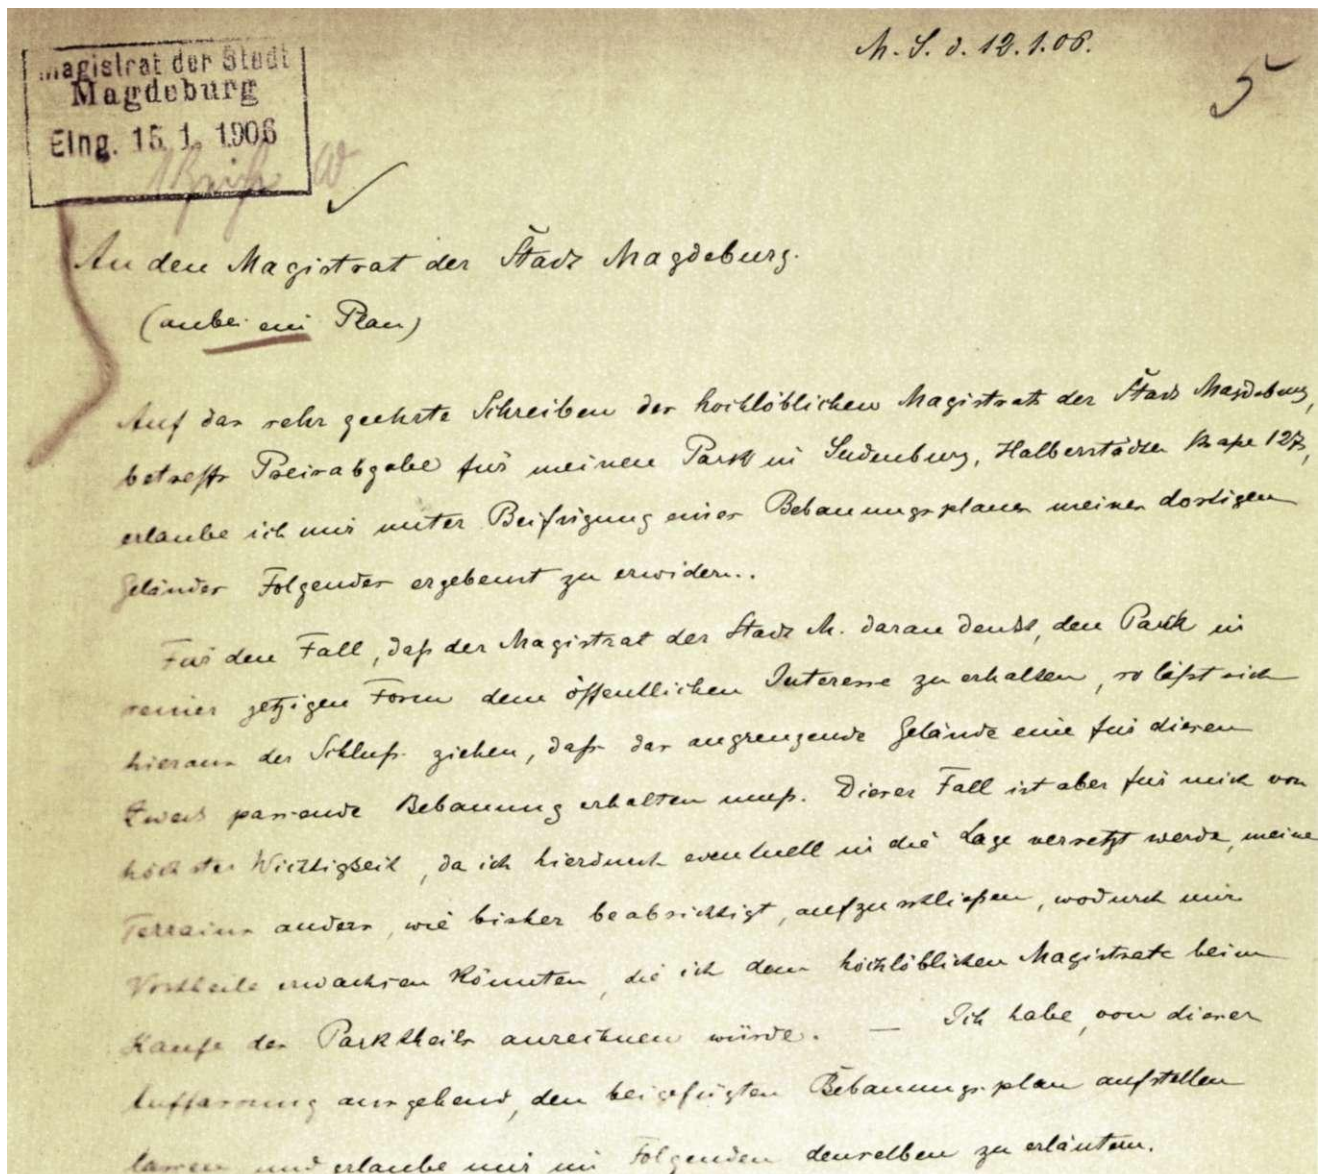 M. S. d. 12.1.06.
5
Magistrat der Stadt
Magdeburg
Eing. 15. 1. 1906
An den Magistrat der Stadt Magdeburg.
(anbei ein Plan)
Auf das sehr geehrte Schreiben des hochlöblichen Magistrats der Stadt Magdeburg,
betreffs Preisabgabe für meinen Park in Sudenburg, Halberstädter Straße 127,
erlaube ich mir unter Beifügung eines Bebauungsplanes meines dortigen
Geländes Folgendes ergebenst zu erwidern.
Für den Fall, daß der Magistrat der Stadt M. daran denkt, den Park in
seiner jetzigen Form dem öffentlichen Interesse zu erhalten, so läßt sich
hieraus der Schluß ziehen, daß das angrenzende Gelände eine für diesen
Zweck passende Bebauung erhalten muß. Dieser Fall ist aber für mich von
höchster Wichtigkeit, da ich hierdurch eventuell in die Lage versetzt werde, meine
Terrains anders, wie bisher beabsichtigt, aufzuschließen, wodurch mir
Vortheile erwachsen könnten, die ich dem hochlöblichen Magistrate beim
Kaufe des Parktheils anrechnen würde. — Ich habe, von dieser
Auffassung ausgehend, den beigefügten Bebauungsplan aufstellen
lassen und erlaube mir im Folgenden denselben zu erläutern.